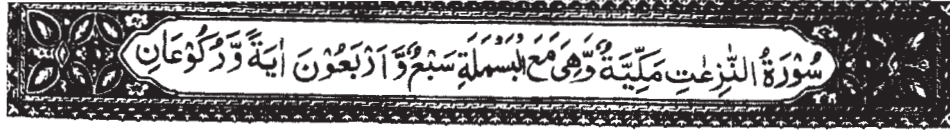 سُوْرَةُ النّٰزِعٰتِ مَكِّيَّةٌ وَّهِیَ مَعَ الْبَسْمَلَةِ سَبْعٌ وَّاَرْبَعُوْنَ اٰيَةً وَّرُكُوْعَانِ